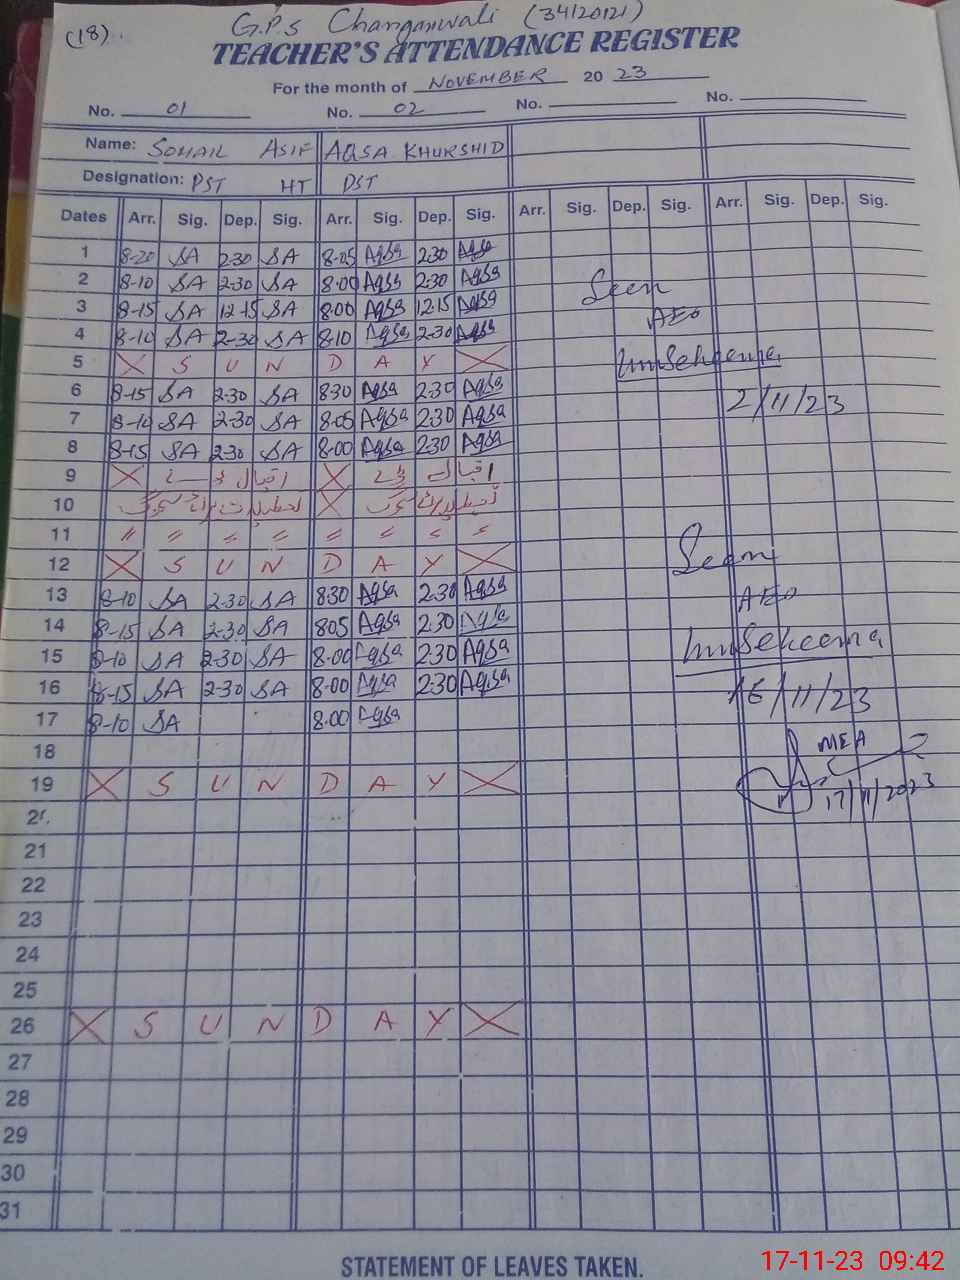 (18).
G.P.S Changanwali (34120121)
TEACHER'S ATTENDANCE REGISTER
For the month of NOVEMBER 20 23
No. 01 No. 02 No. No.
Name: SOHAIL ASIF AQSA KHURSHID
Designation: PST HT PST
Dates Arr. Sig. Dep. Sig. Arr. Sig. Dep. Sig. Arr. Sig. Dep. Sig. Arr. Sig. Dep. Sig.
1 8-20 SA 2-30 SA 8-05 Aqsa 2-30 Aqsa
2 8-10 SA 2-30 SA 8-00 Aqsa 2-30 Aqsa Seen
3 8-15 SA 12-15 SA 8-00 Aqsa 12-15 Aqsa AEO
4 8-10 SA 2-30 SA 8-10 Aqsa 2-30 Aqsa
5 X S U N D A Y X
6 8-15 SA 2-30 SA 8-30 Aqsa 2-30 Aqsa 2/11/23
7 8-10 SA 2-30 SA 8-05 Aqsa 2-30 Aqsa
8 8-15 SA 2-30 SA 8-00 Aqsa 2-30 Aqsa
9 X اقبال ڈے X اقبال ڈے
10 X
11 " " " " " " " "
12 X S U N D A Y X Seen
13 8-10 SA 2-30 SA 8-30 Aqsa 2-30 Aqsa AEO
14 8-15 SA 2-30 SA 8-05 Aqsa 2-30 Aqsa
15 8-10 SA 2-30 SA 8-00 Aqsa 2-30 Aqsa
16 8-15 SA 2-30 SA 8-00 Aqsa 2-30 Aqsa 16/11/23
17 8-10 SA 8-00 Aqsa
18 MEA
19 X S U N D A Y X 17/11/2023
20
21
22
23
24
25
26 X S U N D A Y X
27
28
29
30
31
STATEMENT OF LEAVES TAKEN.
17-11-23 09:42